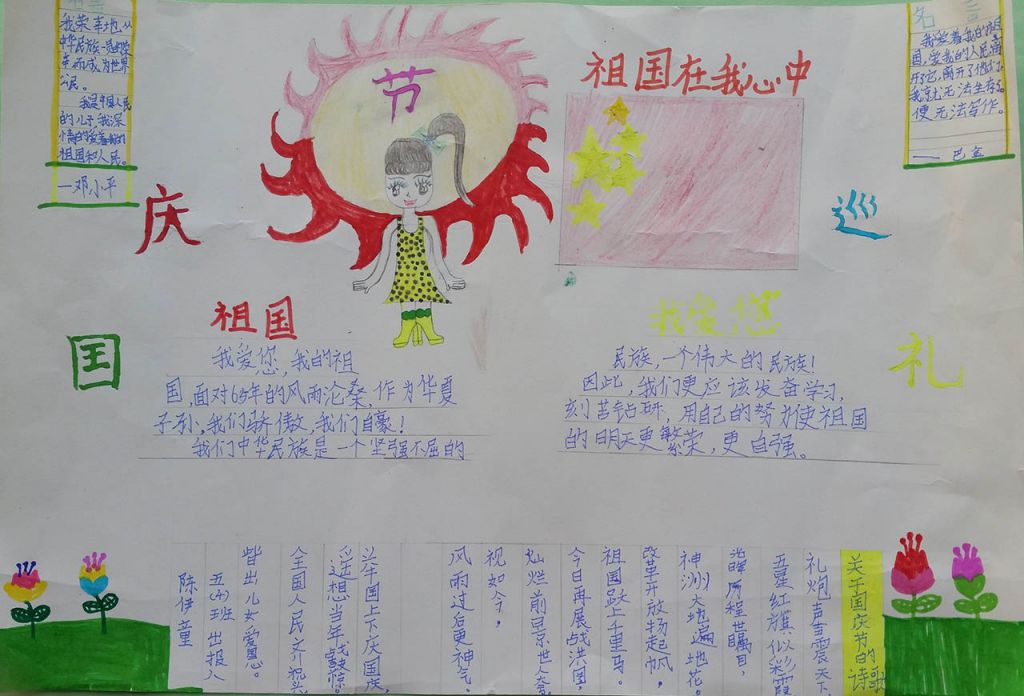 名言
我荣幸地从
中华民族一员的荣
幸而成为世界
公民。
我是中国人民
的儿子我深
情的爱着我的
祖国和人民。
—邓小平
节
祖国在我心中
名言
我爱着我的祖
国,爱我的人民离
开了它,离开了他们,
我就无法生存,
便无法写作。
——巴金
庆
巡
国
礼
祖国
我爱您,我的祖
国,面对65年的风雨沧桑,作为华夏
子孙,我们骄傲,我们自豪!
我们中华民族是一个坚强不屈的
我爱您
民族,一个伟大的民族!
因此,我们更应该发奋学习,
刻苦钻研,用自己的努力使祖国
的明天更繁荣,更自强。
关于国庆节的诗歌
礼炮声声震天
五星红旗似彩霞
光辉历程世瞩目,
神洲大地遍地花。
改革开放扬起帆,
祖国跃上千里马。
今日再展战洪图,
灿烂前景世人夸
视如今,
风雨过后更神气。
举国上下庆国庆,
遥想当年
全国人民齐祝兴
皆出儿女爱恩。
五(4)班 出报人
陈伊童